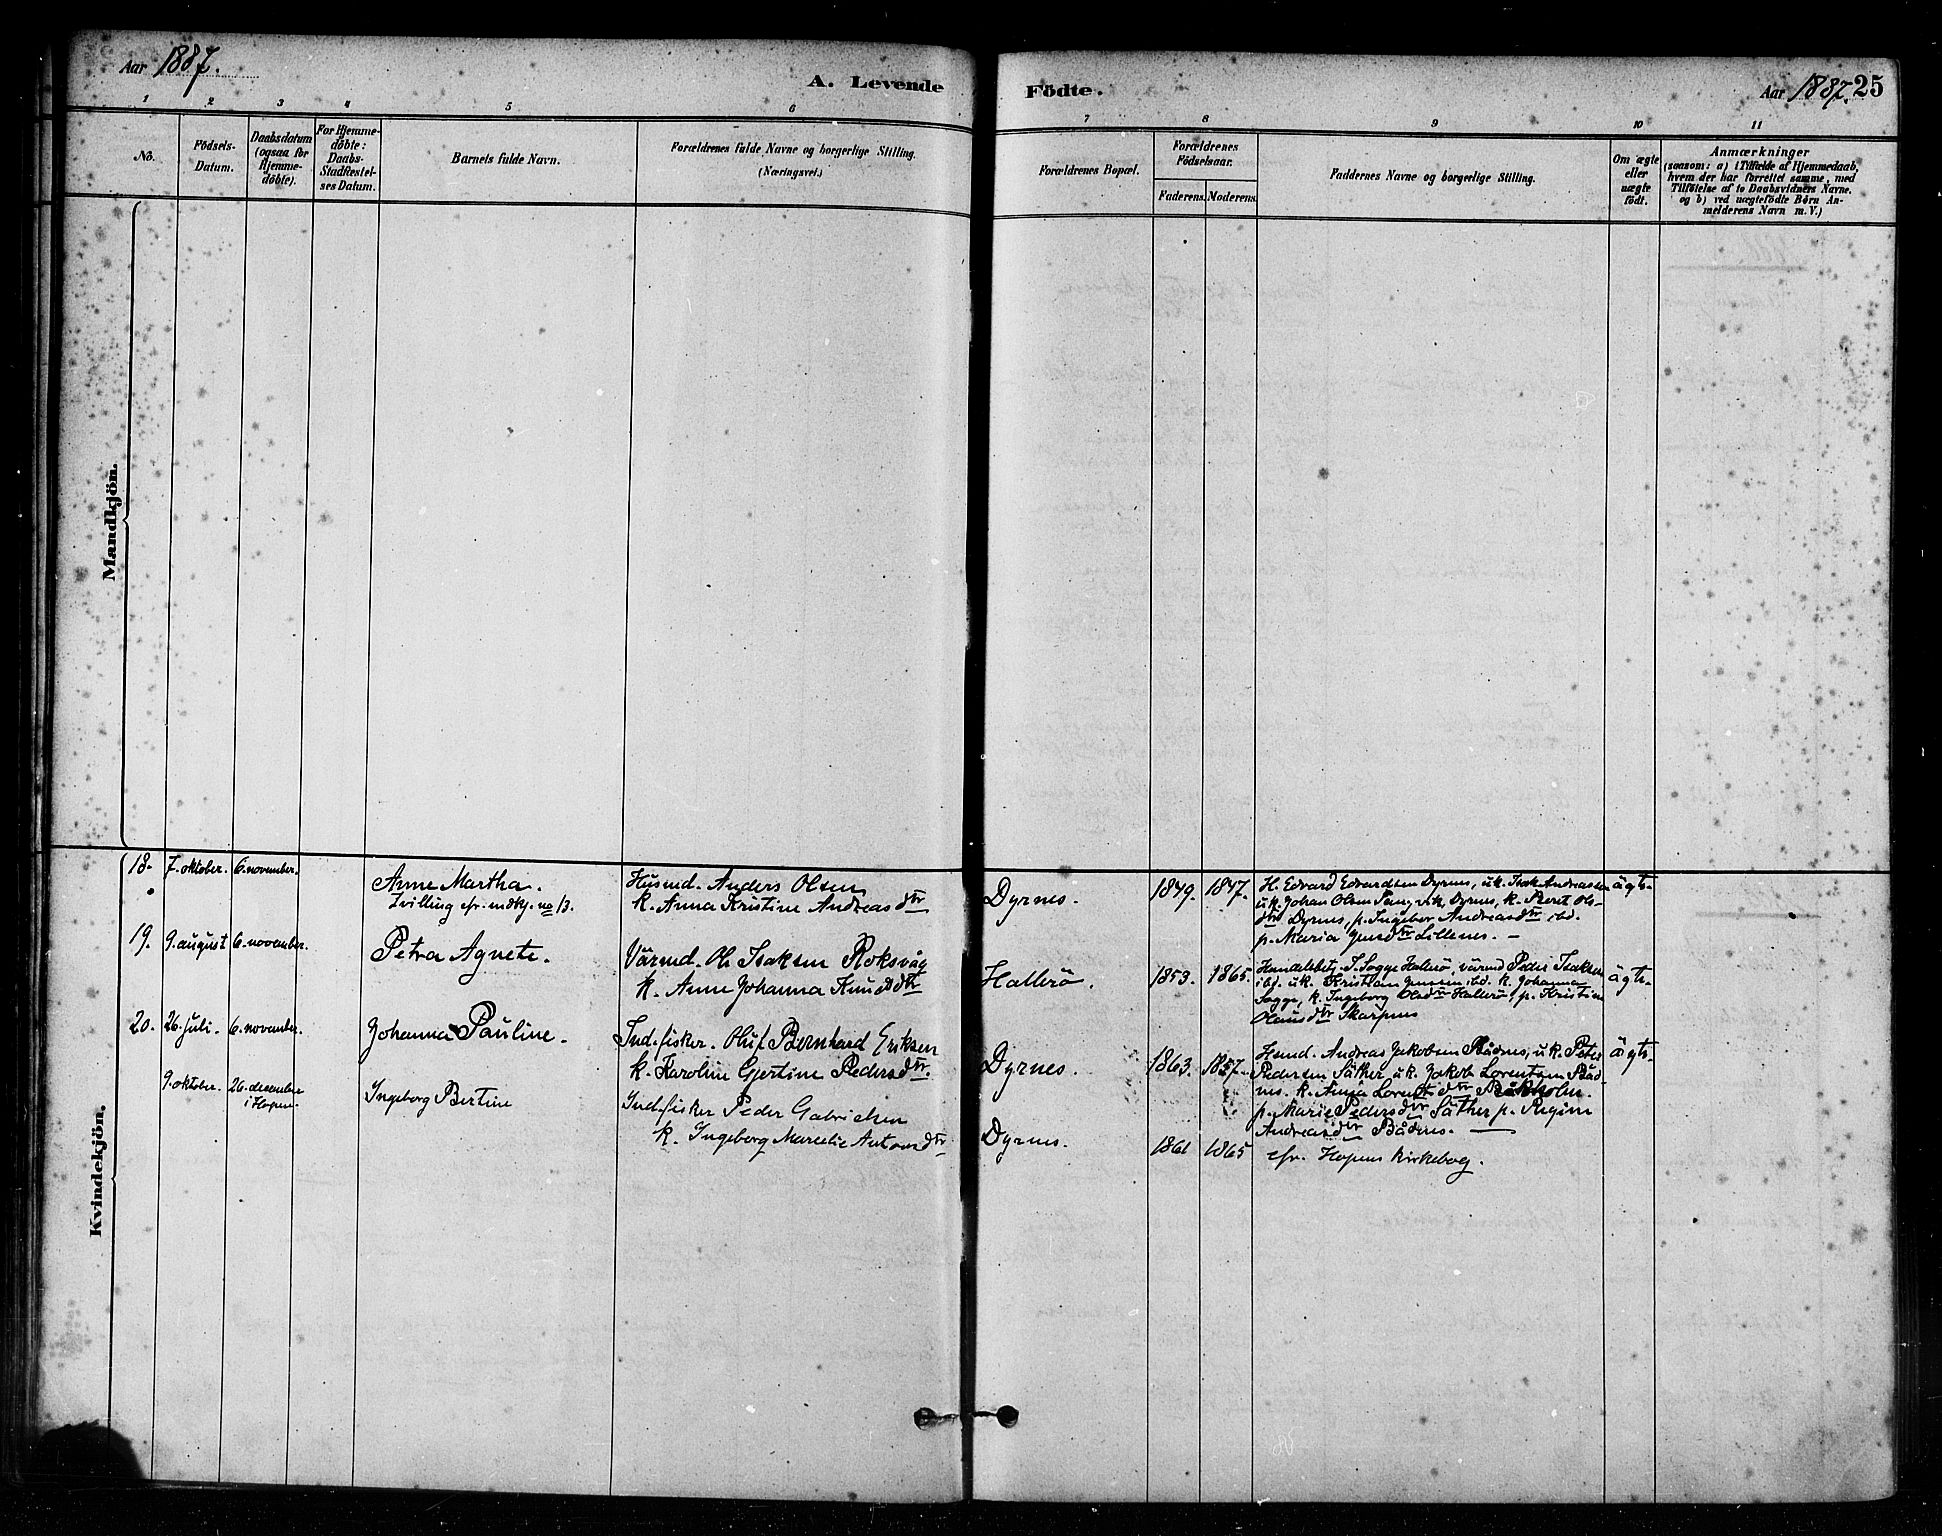 Aar 1887.
A. Levende
Födte.
Aar 1887. 25
1 2 3 4 5 6
7 8 9 10 11
No.
Födsels-
Datum.
Daabsdatum
(ogsaa for
Hjemme-
döbte).
For Hjemme-
döbte:
Daabs-
Stadfæstel-
ses Datum.
Barnets fulde Navn.
Forældrenes fulde Navne og borgerlige Stilling.
(Næringsvei.)
Forældrenes Bopæl.
Forældrenes
Födselsaar.
Faderens. Moderens.
Faddernes Navne og borgerlige Stilling.
Om ægte
eller
uægte
födt.
Anmærkninger
(saasom: a) i Tilfælde af Hjemmedaab,
hvem der har forrettet samme, med
Tilföielse af to Daabsvidners Navne.
og b) ved uægtefödte Börn An-
melderens Navn m. V.)
Mandkjön.
Kvindekjön.
18. 7. oktober. 6. november.
Anne Martha.
Tvilling cfr. mdkj. no 13.
Husmd. Anders Olsen
k. Anna Kristine Andreasdtr
Dyrnes. 1849. 1847.
H. Edvard Edvardsen Dyrnes, u.k. Isak Andreassen
u.k. Johan Olsen Dyrnes, k. Beret Ols-
dtr Dyrnes, p. Ingebor Andreasdtr ibd.
p. Maria Jensdtr Lillenes. —
ägte.
19. 9. august 6. november.
Petra Agnete.
Värmd. Ole Isaksen Roksvåg
k. Anne Johanna Knudsdtr
Hallerö. 1853. 1865.
Handelsbetj. T. Sogge Hallerö, värmd Peder Isaksen
ibd. u.k. Kristian Jensen ibd. k. Johanna
Sogge, k. Ingeborg Olsdtr Hallerö, p. Kristine
Olausdtr Skarpnes
ägte.
20. 26. juli. 6. november.
Johanna Pauline.
Ind. fisker. Oluf Bernhard Eriksen
k. Karoline Gjertine Pedersdtr.
Dyrnes. 1863. 1857.
Husmd. Andreas Jakobsen Bådnes, u.k. Peter
Pedersen Säther u.k. Jakob Lorentsen Båd-
nes. k. Anna Lorentsdtr
p. Marie Pedersdtr Säther p. Regine
Andreasdtr Bådnes. —
ägte.
9. oktober. 26. desember
i Hopen.
Ingeborg Bertine
Ind. fisker Peder Gabrielsen
k. Ingeborg Marcelie Antonsdtr
Dyrnes. 1861 1865
cfr. Hopens Kirkebog.